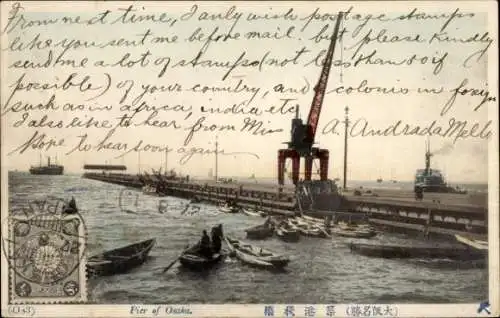 From next time, I only wish postage stamps
like you sent me before mail. but please kindly
send me a lot of stamps (not less than 8 if
possible) of your country, and colonis in foreign
such as in africa, india etc
I also like to hear from Miss A. Andrada Mello
Hope to hear soon again.
JAPAN
(O43) Pier of Osaka. 築港桟橋 (大阪名勝)